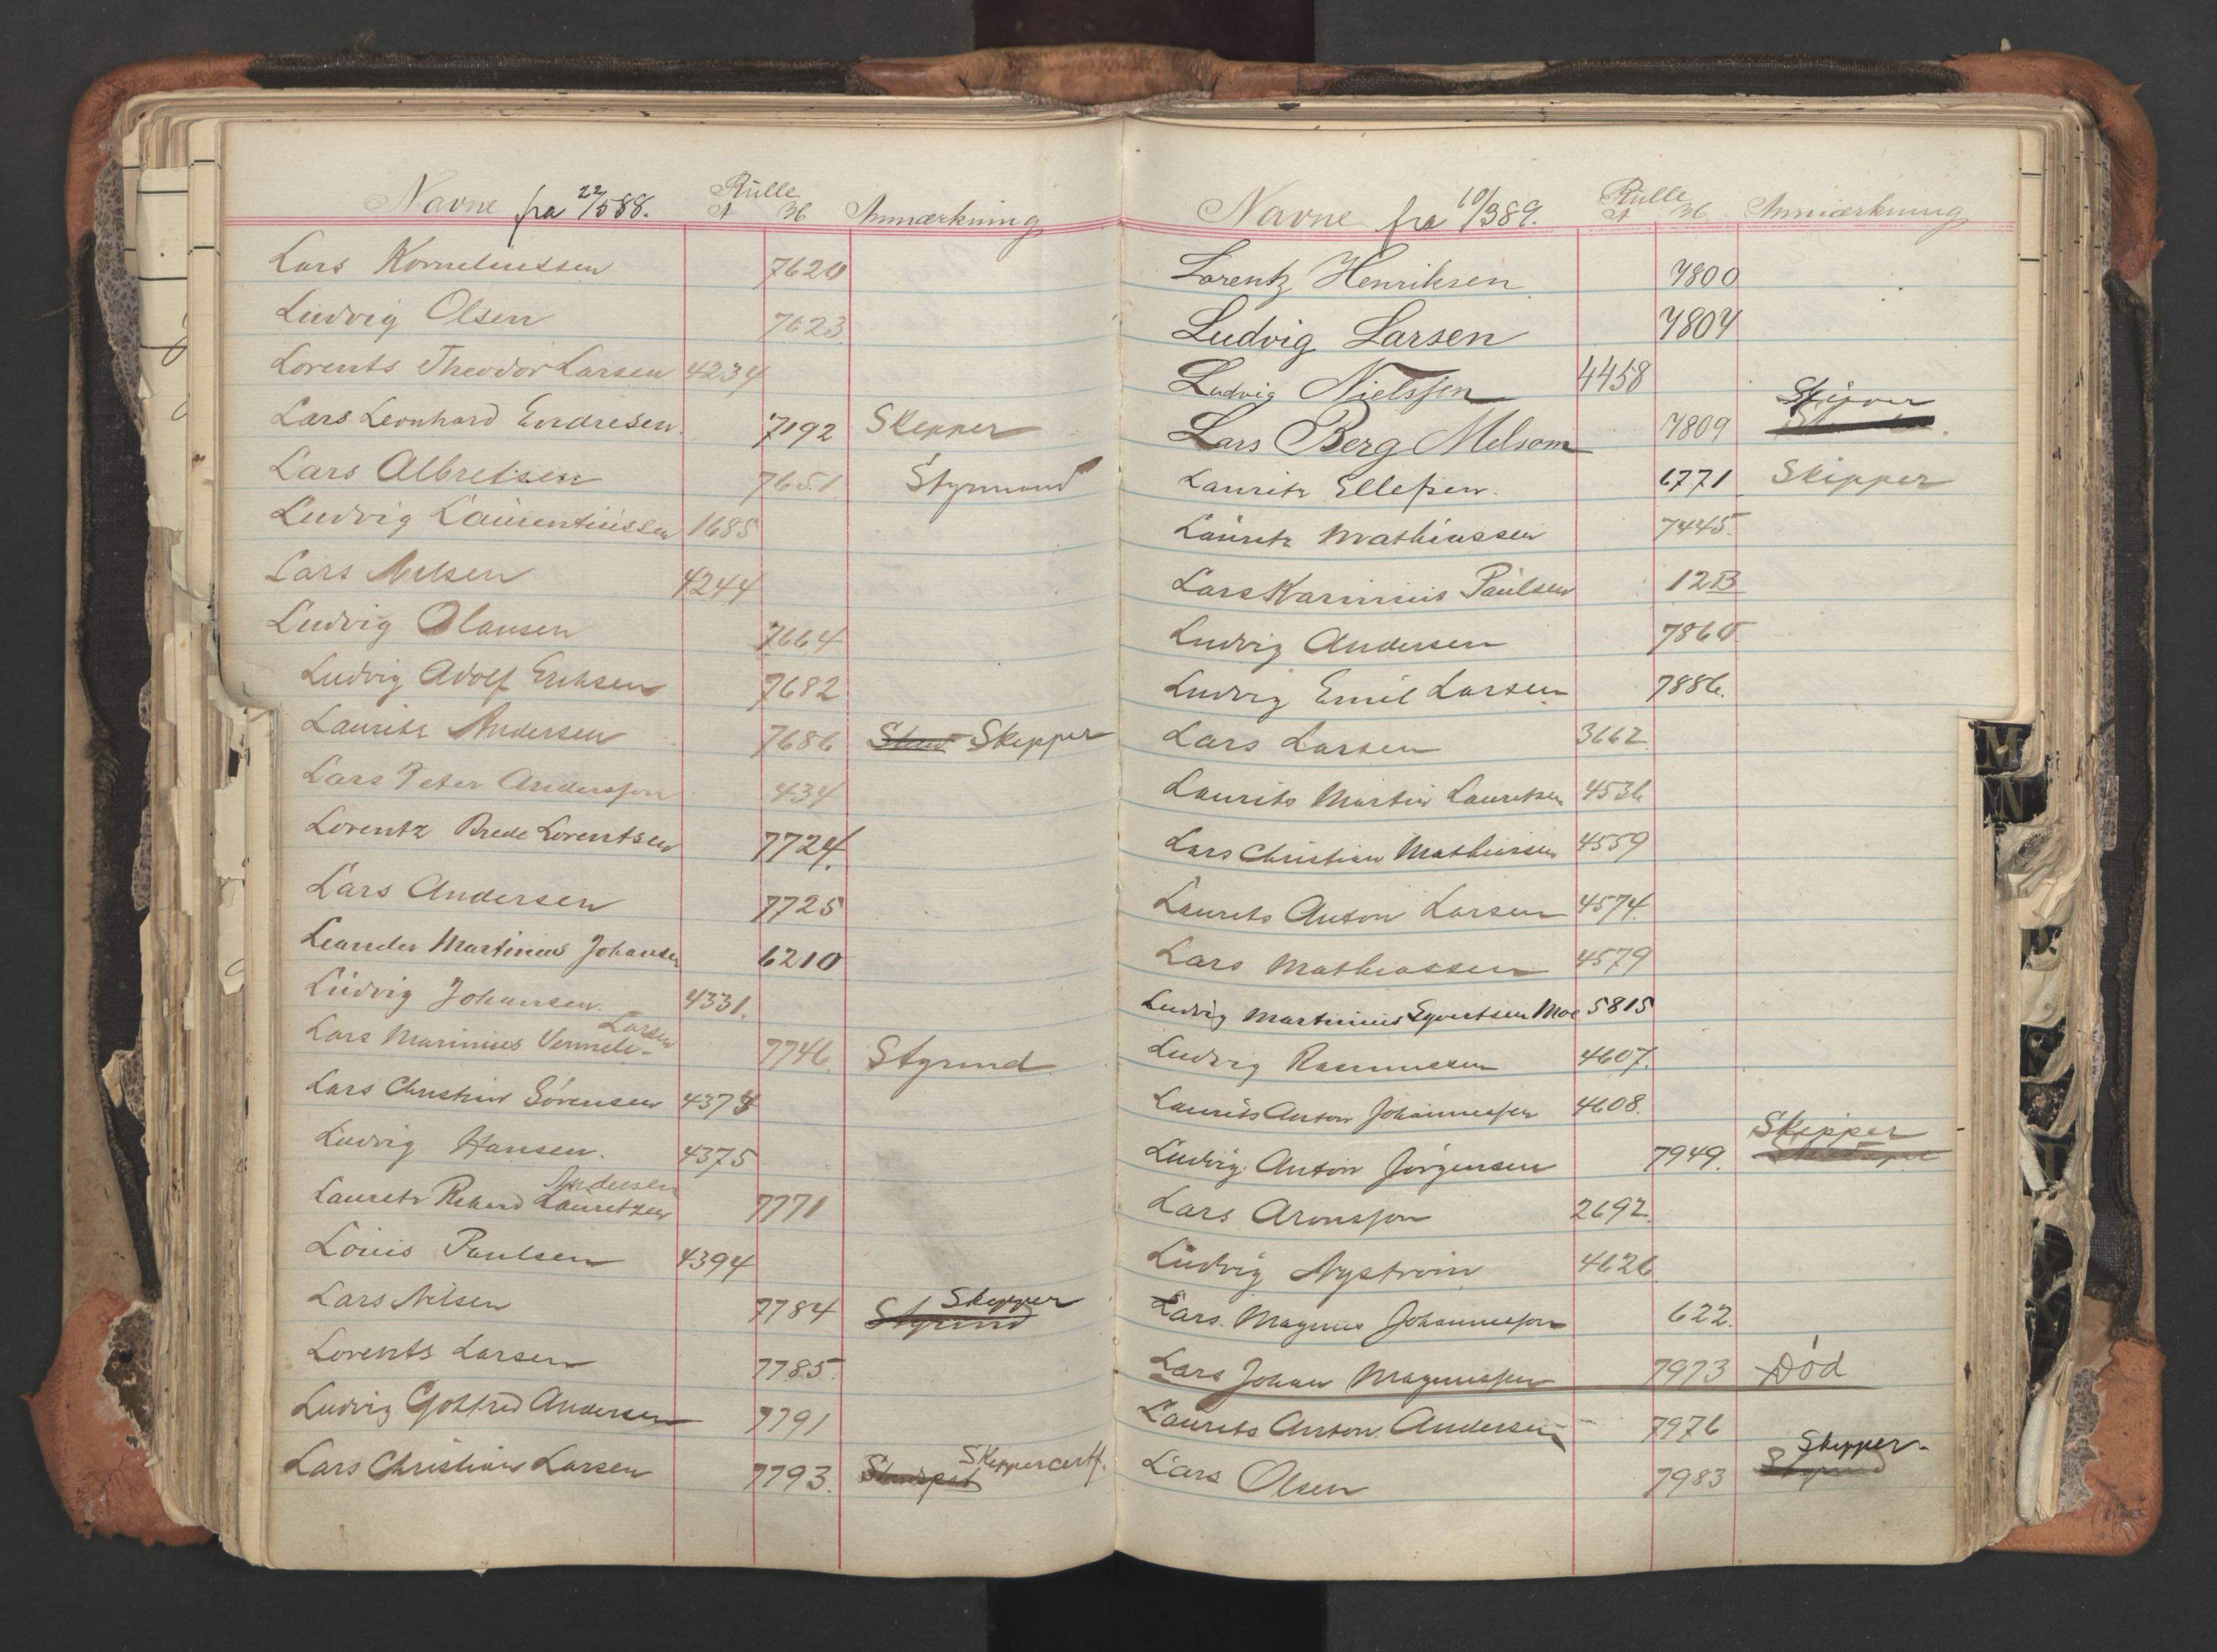 Navne fra 22/5 88. Rulle Anmærkning
Lars Korneliussen 7620
Ludvig Olsen 7623
Lorents Theodor Larsen 4234
Lars Leonhard Endresen 7192 Skipper
Lars Albretsen 7651 Styrmand
Ludvig Laurentiussen 1685
Lars Nelsen 4244
Ludvig Olausen 7664
Ludvig Adolf Eriksen 7682
Lauritz Andersen 7686 Skipper
Lars Peter Andersson 434
Lorentz Brede Lorentsen 7724.
Lars Andersen 7725
Leander Martinius Johansen 6210
Ludvig Johansen. 4331.
Larsen
Lars Marinius 7746. Styrmd
Lars Christian Sörensen 4374
Ludvig Hansen. 4375
Andersen
Lauritz Rikard Lauritzen 7771
Louis Paulsen 4394
Skipper
Lars Nilsen 7784 Styrmd
Lorents Larsen 7785
Ludvig Gotfred Andersen 7791
Skippercertf.
Lars Christian Larsen 7793.
Navne fra 10/3 89. Rulle Anmærkning
Lorentz Henriksen 7800
Ludvig Larsen 7804
Ludvig Nielssen 4458
Lars Berg Melsom 7809
Lauritz Ellefsen. 6771 Skipper
Lauritz Mathiassen 7445.
Lars Karinius Paulsen 12B
Ludvig Andersen 7860
Ludvig Emil Larsen 7886.
Lars Larsen 3662
Laurits Martin Lauritsen 4536
Lars Christian Mathiesen 4559
Laurits Anton Larsen 4574.
Lars Mathiassen 4579
Ludvig Martinius Syvertsen Moe 5815
Ludvig Rasmussen 4607.
Laurits Anton Johannessen 4608.
Skipper
Ludvig Anton Jörgensen 7949.
Lars Aronsson 2692.
Ludvig Nyström 4626
Lars Magnus Johannesson 622.
Lars Johan Magnussen 7973 Död
Laurits Anton Andersen 7976
Skipper
Lars Olsen 7983 Styrmd
M
N